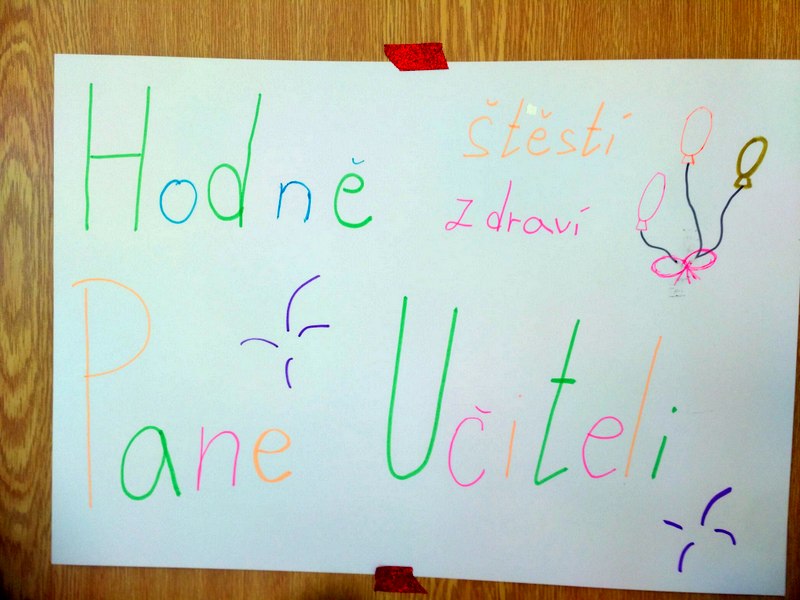 Hodně štěstí
zdraví
Pane Učiteli